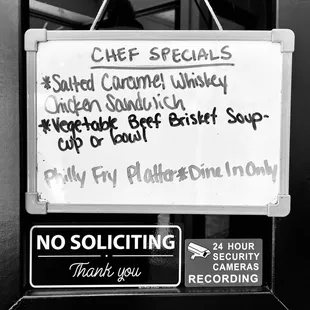 CHEF SPECIALS
*Salted Caramel Whiskey
Chicken Sandwich
*Vegetable Beef Brisket Soup-
cup or bowl
Philly Fry Platter*Dine In Only
NO SOLICITING
Thank you
24 HOUR
SECURITY
CAMERAS
RECORDING